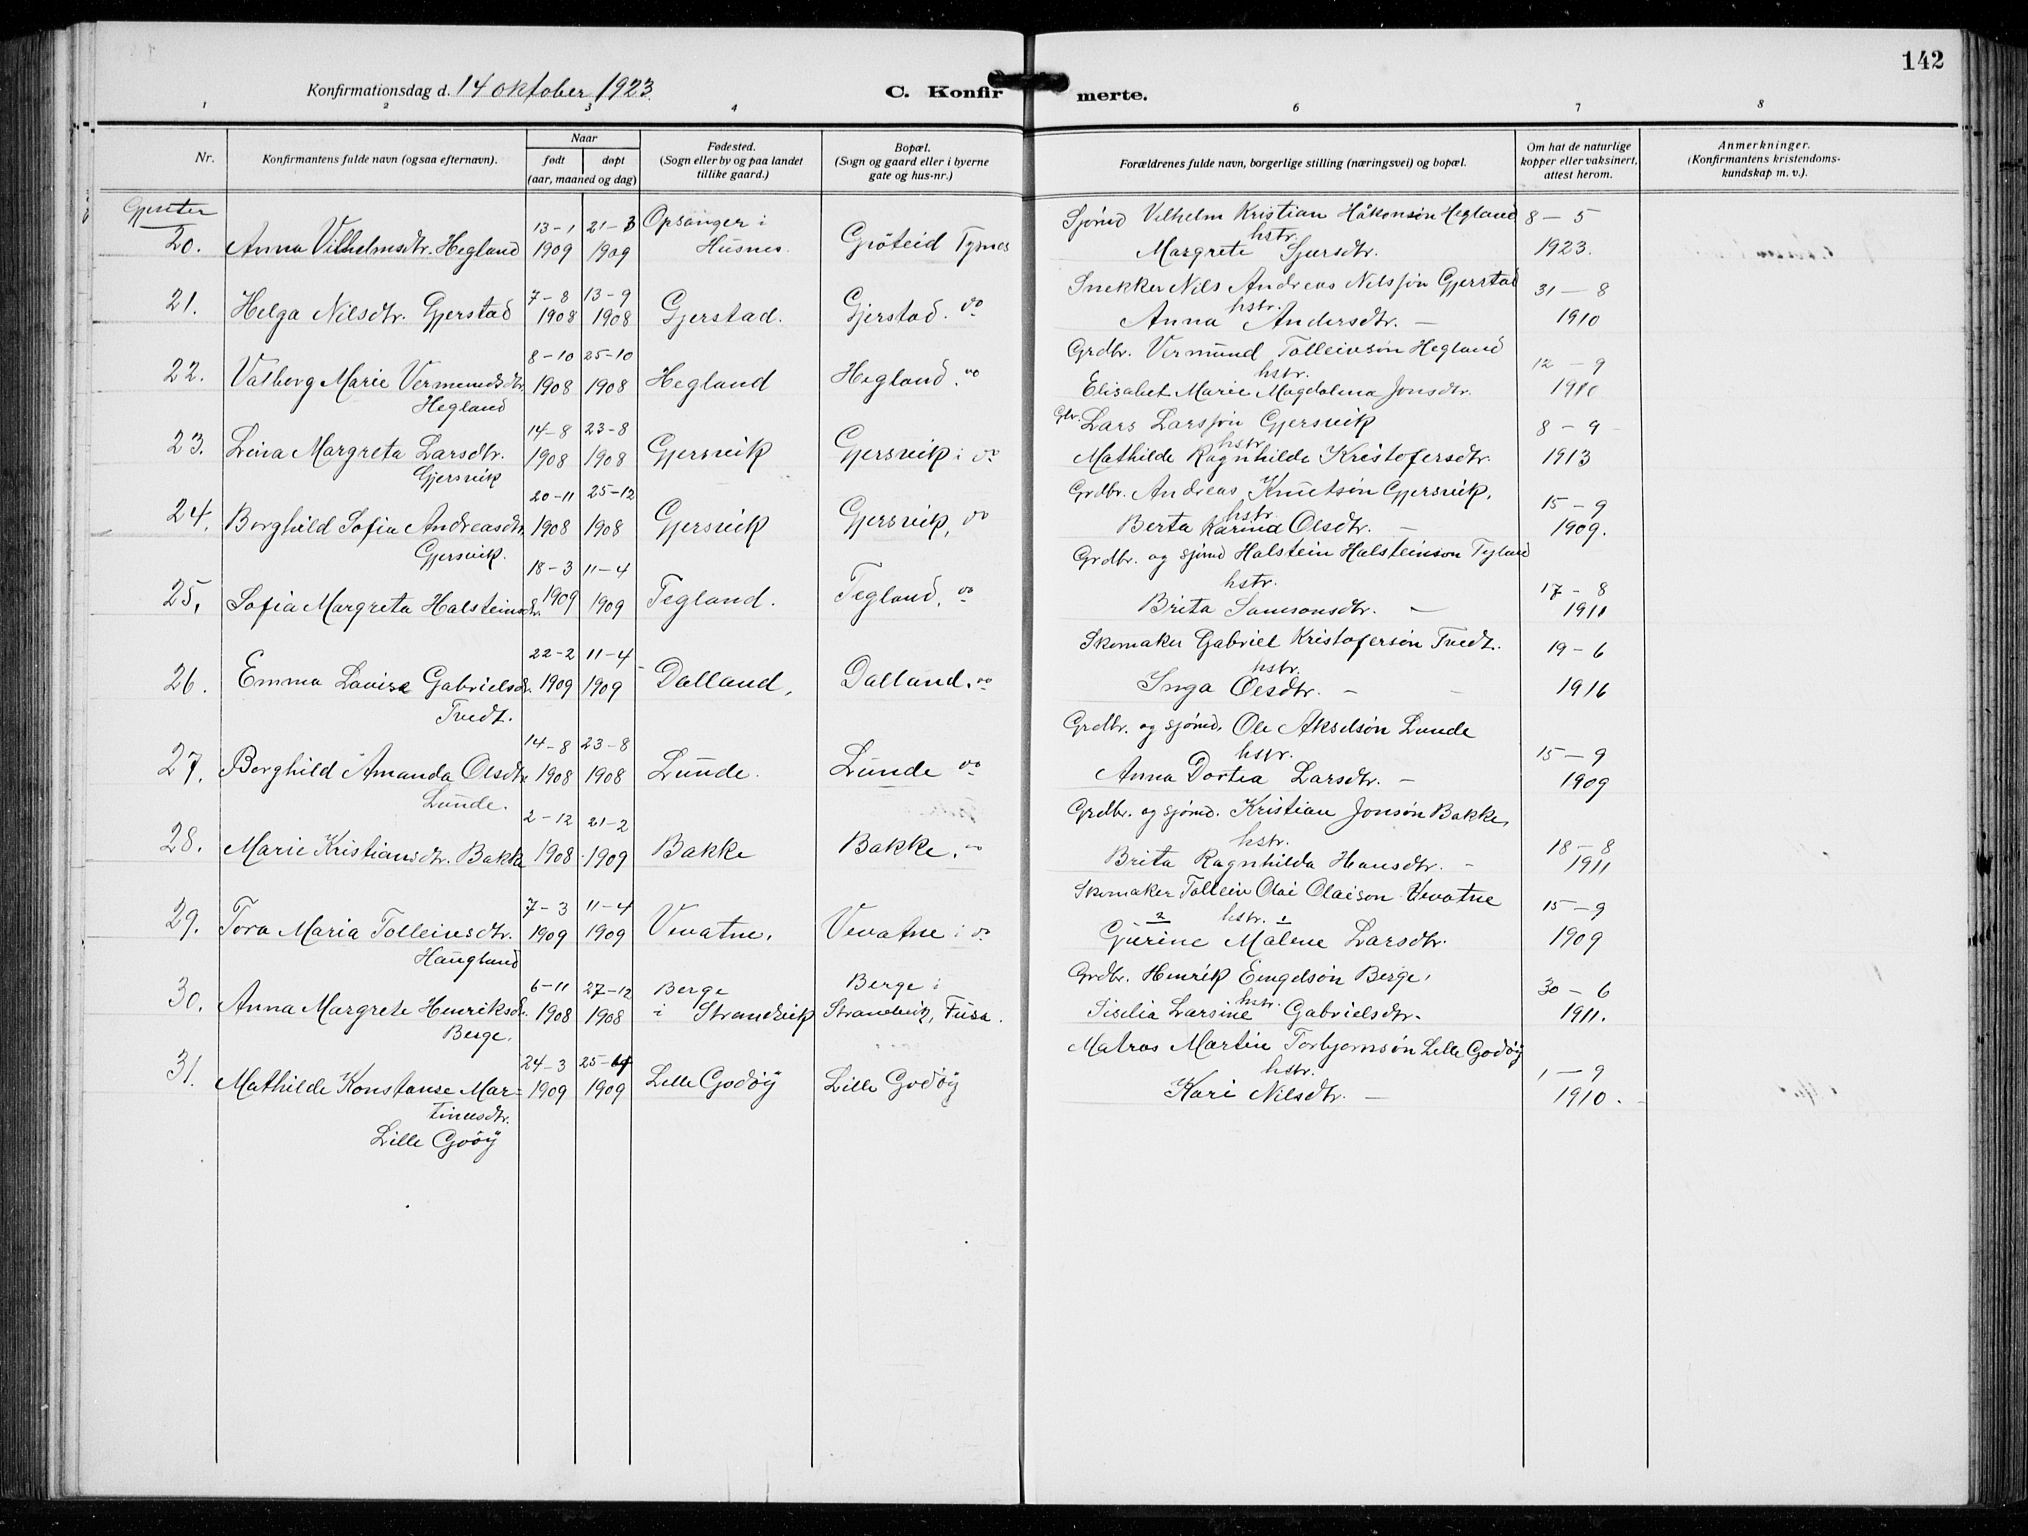 142
Konfirmationsdag d. 14 oktober 1923.
C. Konfir merte.
1 2 3 4 6 7 8
Nr.
Konfirmantens fulde navn (ogsaa efternavn).
Naar
født døpt
(aar, maaned og dag)
Fødested.
(Sogn eller by og paa landet
tillike gaard.)
Bopæl.
(Sogn og gaard eller i byerne
gate og hus-nr.)
Forældrenes fulde navn, borgerlige stilling (næringsvei) og bopæl.
Om hat de naturlige
kopper eller vaksinert,
attest herom.
Anmerkninger.
(Konfirmantens kristendoms-
kundskap m. v.).
Gjenter
13-1 21-3 Opsanger i Sjømd Vilhelm Kristian Håkonsøn Hegland 8 - 5
20. Anna Vilhelmsdtr. Hegland 1909 1909 Husnes. Grøteid Tysnes hstr. Margrete Sjursdtr. 1923.
7-8 13-9 Snekker Nils Andreas Nilssøn Gjerstad 31 - 8
21. Helga Nilsdtr. Gjerstad 1908 1908 Gjerstad. Gjerstad. do hstr. Anna Andersdtr. - 1910
8-10 25-10 Grdbr. Vermund Tolleivsøn Hegland 12 - 9
22. Valborg Marie Vermundsdtr. 1908 1908 Hegland Hegland. do hstr. Elisabet Marie Magdalena Jonsdtr. 1910
Hegland
14-8 23-8 Gbr. Lars Larssøn Gjersvik 8 - 9
23. Lina Margreta Larsdtr. 1908 1908 Gjersvik Gjersvik i do hstr. Mathilde Ragnhilde Kristofersdtr. 1913
Gjersvik
20-11 25-12 Grdbr. Andreas Knutsøn Gjersvik, 15 - 9
24. Borghild Sofia Andreasdtr. 1908 1908 Gjersvik Gjersvik, do hstr. Berta Karina Olsdtr. - 1909.
Gjersvik.
18-3 11-4 Grdbr. og sjømd Halstein Halsteinson Tegland 17 - 8
25. Sofia Margreta Halsteinsdr. 1909 1909 Tegland. Tegland. do hstr. Brita Samsonsdtr. - 1911
22-2 11-4 Skomaker Gabriel Kristofersøn Tvedt. 19 - 6
26. Emma Lovise Gabrielsdr. 1909 1909 Dalland. Dalland. do hstr. Inga Olsdtr. - 1916
Tvedt.
14-8 23-8 Grdbr. og sjømd. Ole Akselsøn Lunde 15 - 9
27. Borghild Amanda Olsdtr. 1908 1908 Lunde. Lunde do hstr. Anna Dortea Larsdtr. - 1909
Lunde.
2-12 21-2 Grdbr. og sjømd. Kristian Jonsøn Bakke, 18 - 8
28. Marie Kristiansdtr. Bakke 1908 1909 Bakke Bakke. do hstr. Brita Ragnhilda Hansdtr. - 1911
7-3 11-4 Skomaker Tolleiv Olai Olaison Vevatne 15 - 9
29. Tora Maria Tolleivsdtr. 1909 1909 Vevatne. Vevatne i do 2 hstr. 1 Gurine Malene Larsdtr. 1909
Haugland
6-11 27-12 Berge Berge i Grdbr. Henrik Engelsøn Berge. 30 - 6
30. Anna Margrete Henriksdr. 1908 1908 i Strandvik Strandvik, Fusa. hstr. Siselia Larsine Gabrielsdtr. 1911.
Berge.
24-3 25-4 Matros Martin Torbjørnsøn Lille Godøy 1 - 9
31. Mathilde Konstanse Mar- 1909 1909 Lille Godøy Lille Godøy hstr. Kari Nilsdtr. - 1910.
tinusdtr.
Lille Goöy